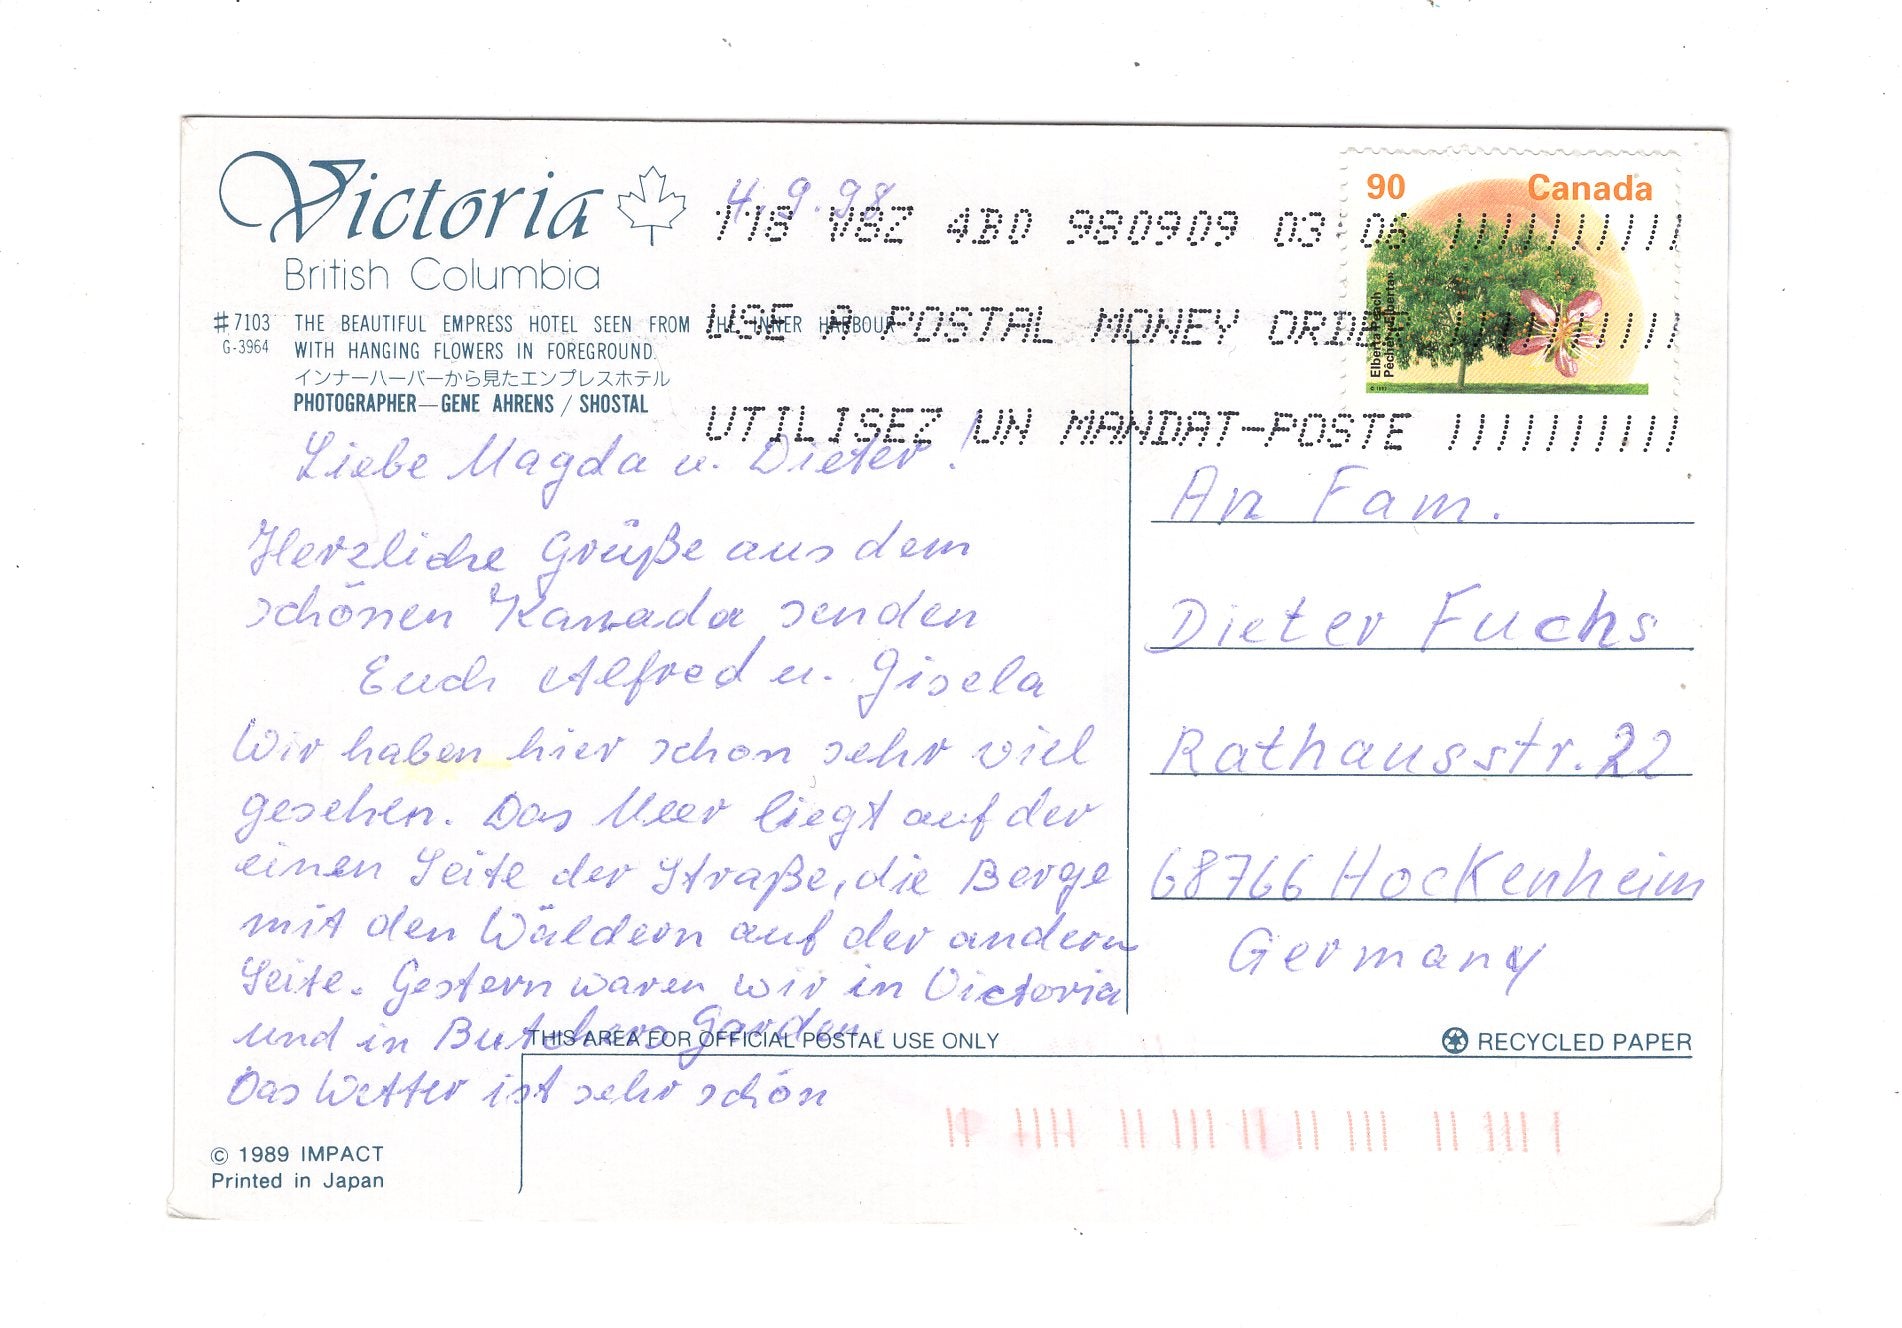 Victoria
British Columbia
#7103 THE BEAUTIFUL EMPRESS HOTEL SEEN FROM THE INNER HARBOUR
G-3964 WITH HANGING FLOWERS IN FOREGROUND.
インナーハーバーから見たエンプレスホテル
PHOTOGRAPHER—GENE AHRENS / SHOSTAL
4.9.98
V8Z 4B0 980909 03 06
USE A POSTAL MONEY ORDER
UTILISEZ UN MANDAT-POSTE
90 Canada
Elberta Peach
Pêcher «Elberta»
Liebe Magda u. Dieter!
Herzliche Grüße aus dem
schönen Kanada senden
Euch Alfred u. Gisela
Wir haben hier schon sehr viel
gesehen. Das Meer liegt auf der
einen Seite der Straße, die Berge
mit den Wäldern auf der andern
Seite. Gestern waren wir in Victoria
und in Butchers Garden.
Das Wetter ist sehr schön
An Fam.
Dieter Fuchs
Rathausstr. 22
68766 Hockenheim
Germany
THIS AREA FOR OFFICIAL POSTAL USE ONLY
RECYCLED PAPER
© 1989 IMPACT
Printed in Japan